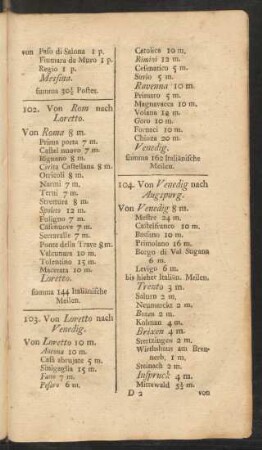 von Paso di Salona 1 p.
Fiumara de Muro 1 p.
Regio 1 p.
Messina.
summa 30½ Postes.
102. Von Rom nach
Loretto.
Von Roma 8 m.
Prima porta 7 m.
Castel nuovo 7 m.
Rignano 8 m.
Civita Castellana 8 m.
Otricoli 8 m.
Narini 7 m.
Terni 7 m.
Strettura 8 m.
Spoleto 12 m.
Fuligno 7 m.
Casenuove 7 m.
Serravalle 7 m.
Ponte della Trave 8 m.
Valcimara 10 m.
Tolentino 15 m.
Macerata 10 m.
Loretto.
summa 144 Italiänische
Meilen.
103. Von Loretto nach
Venedig.
Von Loretto 10 m.
Ancona 10 m.
Casa abrujate 5 m.
Sinigaglia 15 m.
Fano 7 m.
Pesaro 6 m.
Catolica 10 m.
Rimini 12 m.
Cesinatico 5 m.
Savio 5 m.
Ravenna 10 m.
Primaro 5 m.
Magnavacca 10 m.
Volana 18 m.
Goro 10 m.
Fornaci 10 m.
Chioza 20 m.
Venedig.
summa 162 Italiänische
Meilen.
104. Von Venedig nach
Augspurg.
Von Venedig 8 m.
Mestre 24 m.
Castelfranco 10 m.
Bassano 10 m.
Primolano 16 m.
Burgo di Val Sugana
6 m.
Levigo 6 m.
bis hieher Italiän. Meilen.
Trento 3 m.
Salurn 2 m.
Neumarckt 2 m.
Bozen 2 m.
Kolman 4 m.
Brixen 4 m.
Stertzingen 2 m.
Wirthshaus am Bren-
nerb. 1 m.
Steinach 2 m.
Insprugk 4 m.
Mittewald 3½ m.
D 2
von